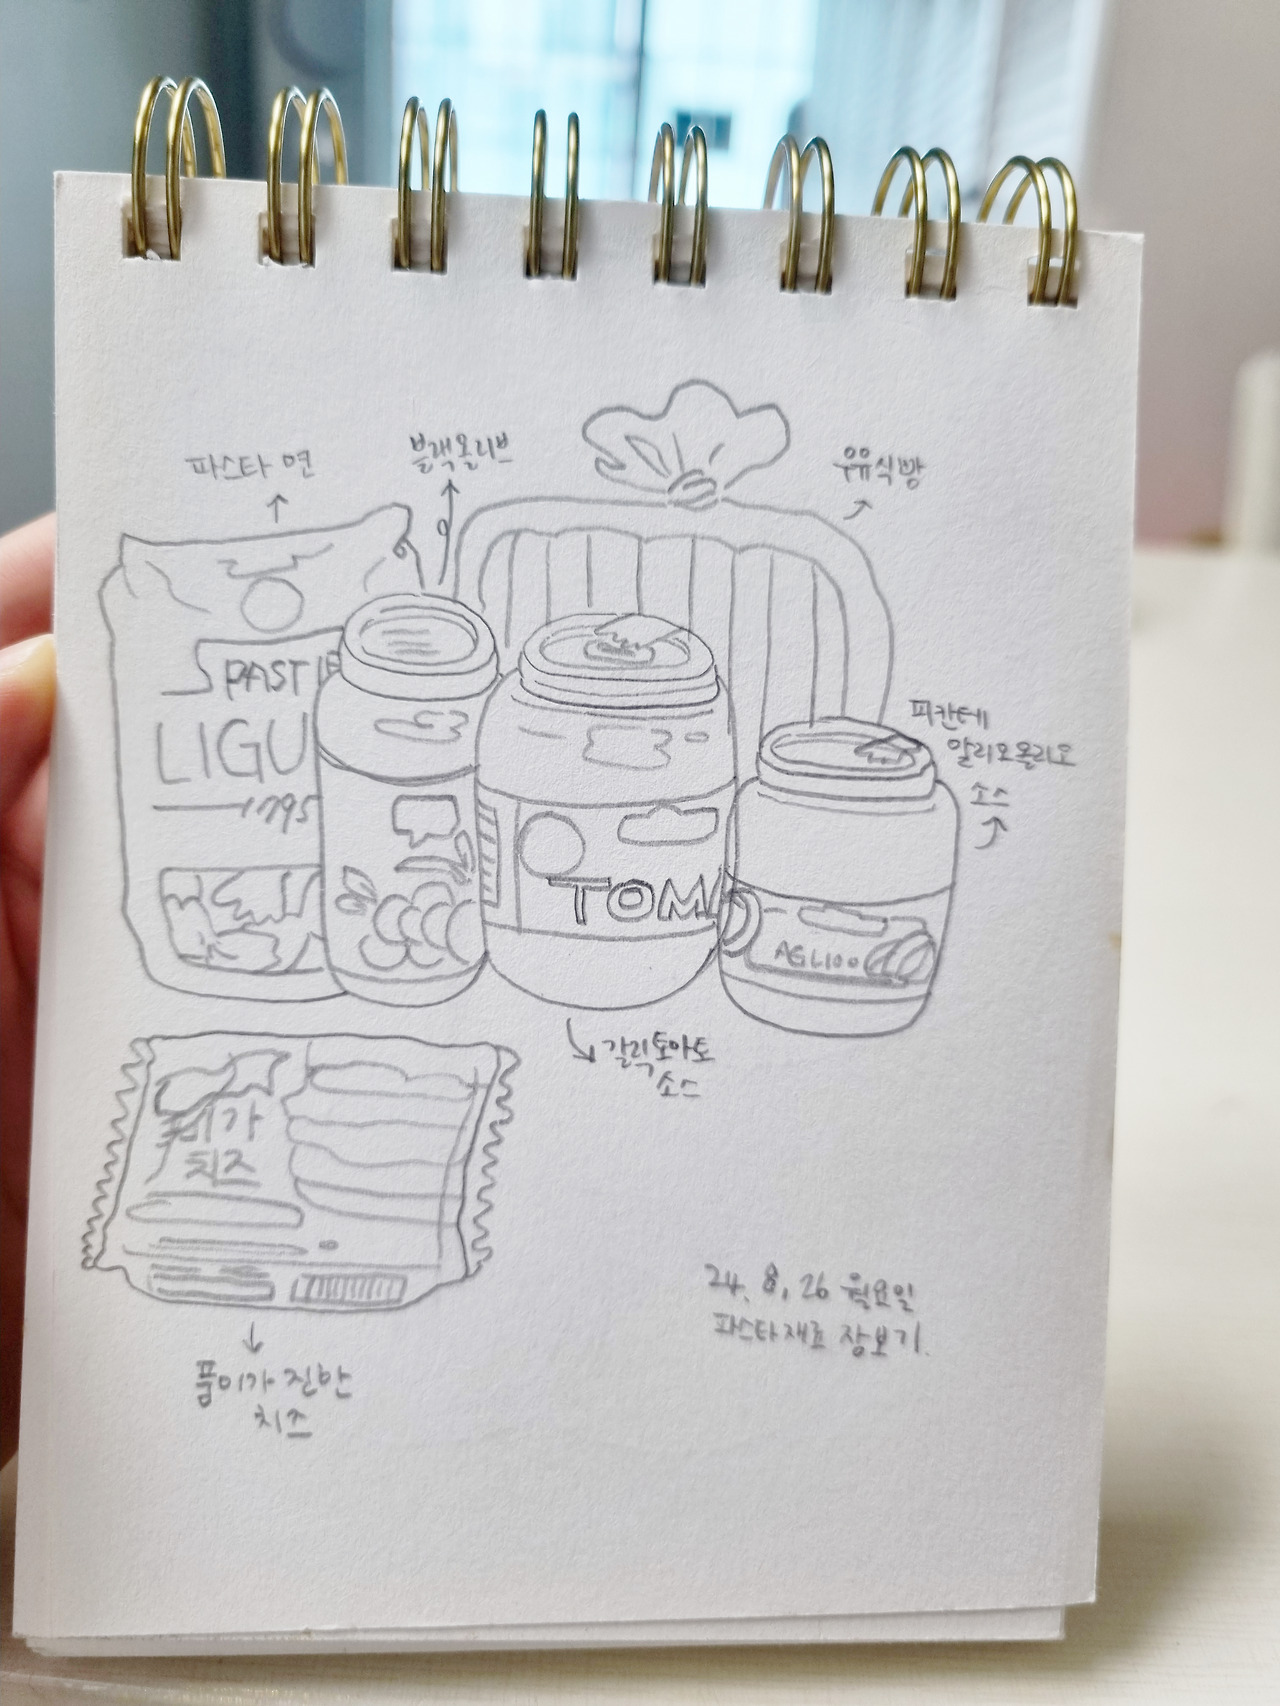 파스타 면
블랙올리브
우유식빵
PASTIF
LIGU
1795
TOM
피칸테
알리오올리오
소스
AGLIOO
갈릭토마토
소스
치즈
풍미가 진한
치즈
24. 8. 26 월요일
파스타재료 장보기.